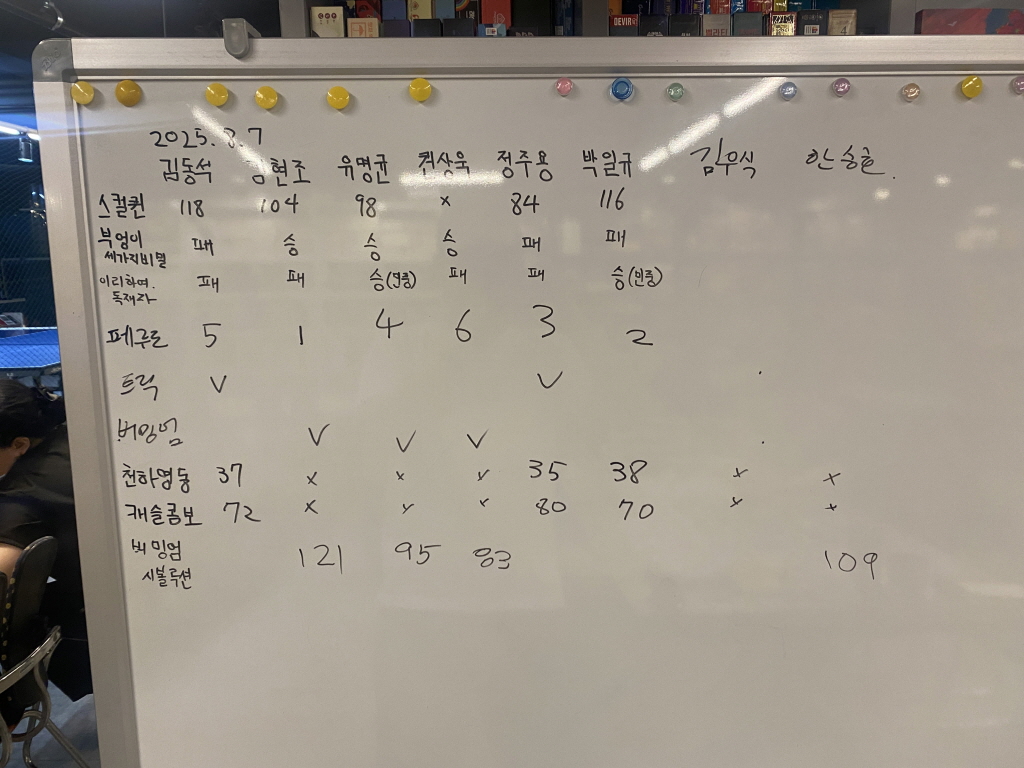 DEVIR
2025. 8. 7
김동석 김현조 유명균 최상욱 정주용 박일규 김무식 안승호.
스컬퀸 118 104 98 x 84 116
부엉이 세가지비밀 패 승 승 승 패 패
이리하여. 독재자 패 패 승(민중) 패 패 승(민중)
페구로 5 1 4 6 3 2
트릭 V V
V V V
천하영웅 37 x x x 35 38 x x
캐슬콤보 72 x x x 80 70 x x
121 95 83 109